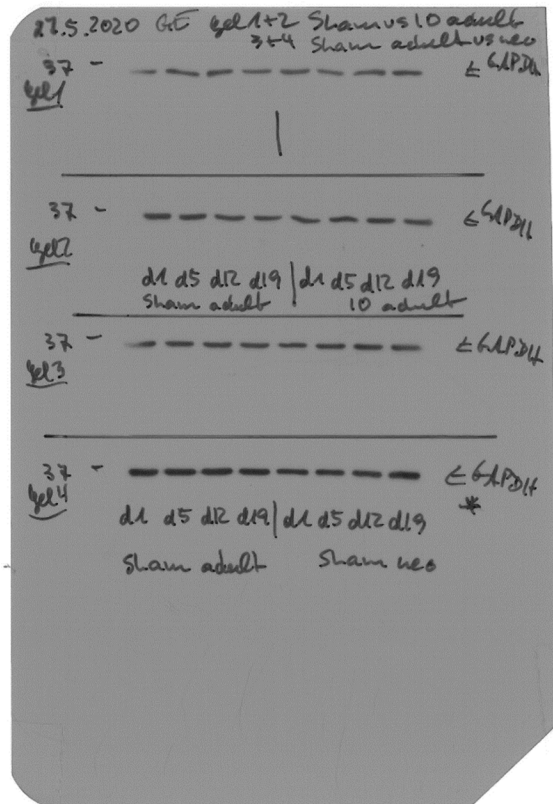 27.5.2020 GE gel 1+2 Sham vs 10 adult
3+4 Sham adult vs neo
37 - ← GAPDH
Gel1
37 - ← GAPDH
Gel2
d1 d5 d12 d19 | d1 d5 d12 d19
Sham adult 10 adult
37 - ← GAPDH
Gel3
37 - ← GAPDH
Gel4 *
d1 d5 d12 d19 | d1 d5 d12 d19
Sham adult Sham neo